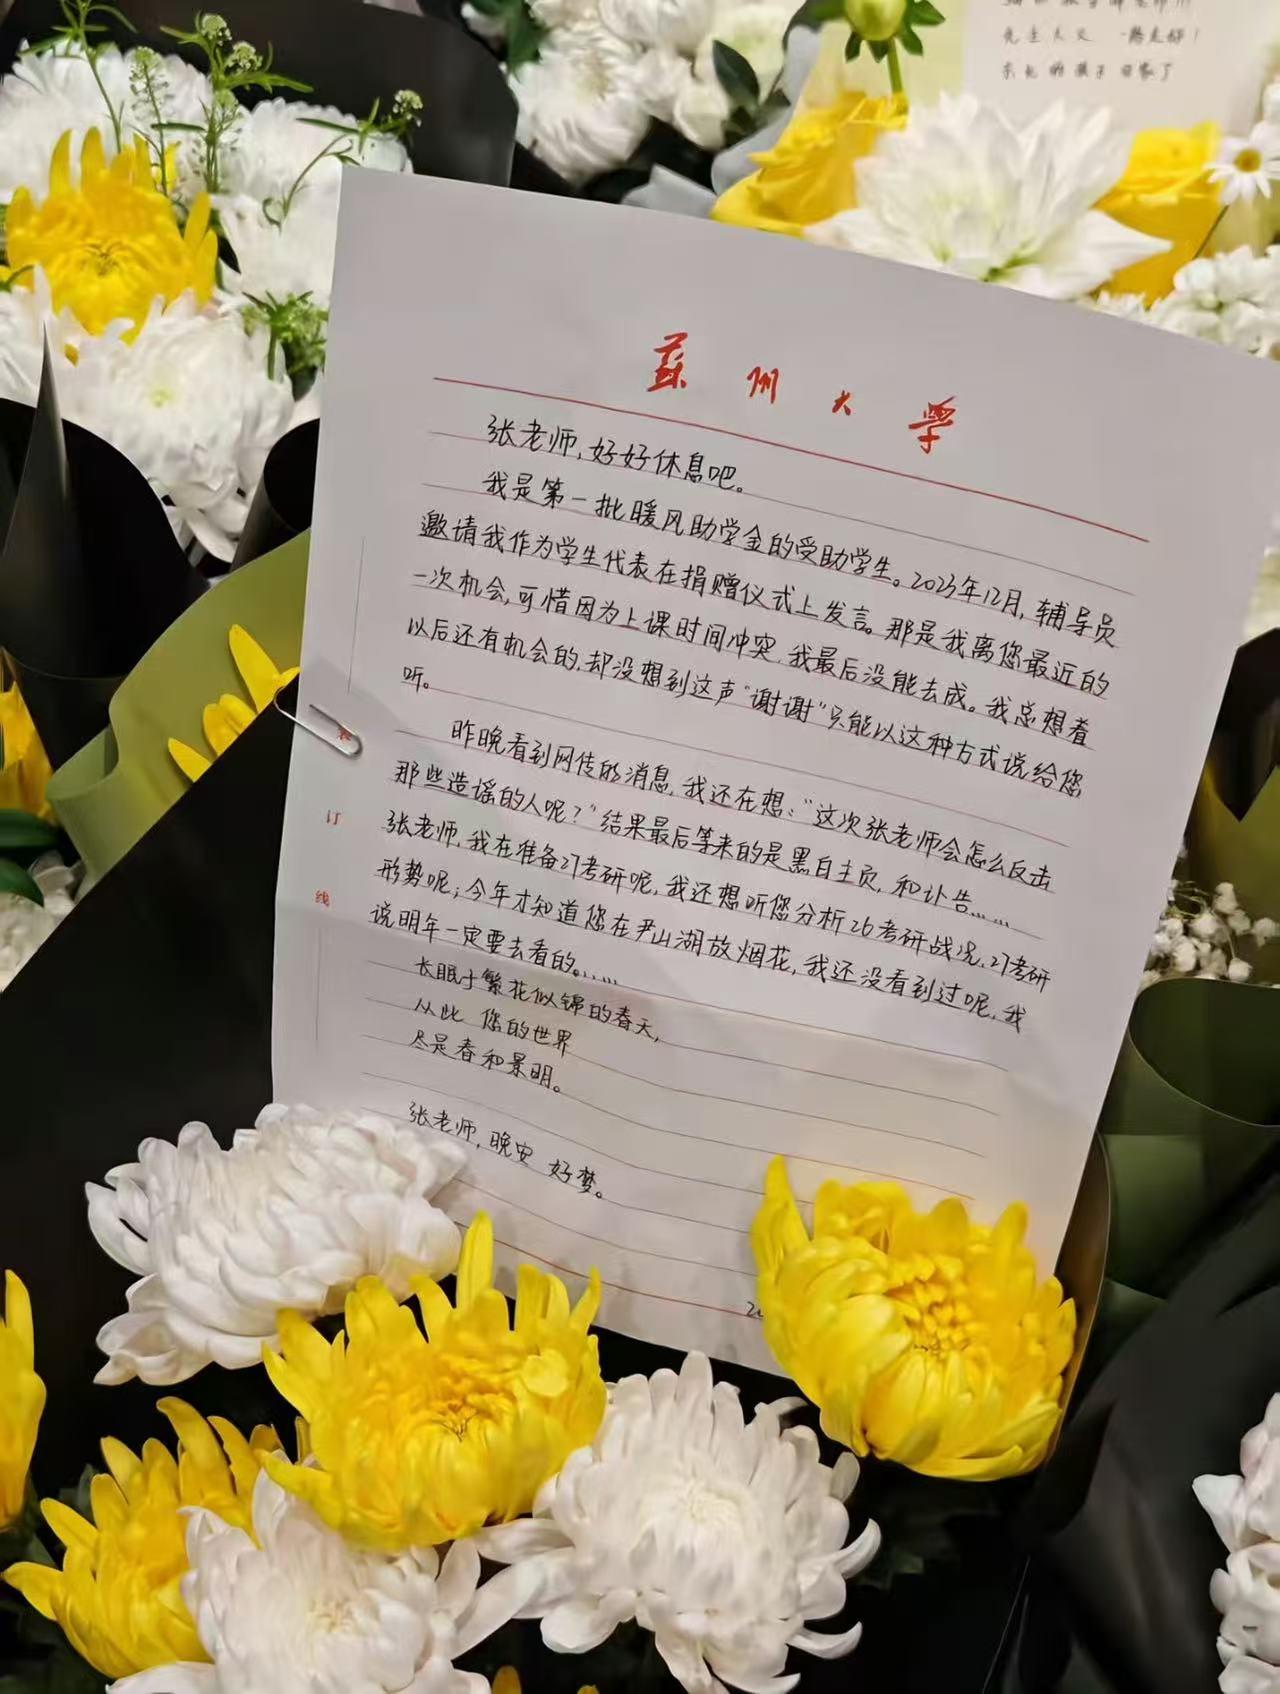 先生大义 一路走好！
东北的孩子回家了
蘇州大学
张老师,好好休息吧。
我是第一批暖风助学金的受助学生。2023年12月,辅导员
邀请我作为学生代表在捐赠仪式上发言。那是我离您最近的
一次机会,可惜因为上课时间冲突,我最后没能去成。我总想着
以后还有机会的,却没想到这声“谢谢”只能以这种方式说给您
听。
昨晚看到网传的消息,我还在想:“这次张老师会怎么反击
那些造谣的人呢?”结果最后等来的是黑白主页,和讣告……
张老师,我在准备27考研呢,我还想听您分析26考研战况、27考研
形势呢;今年才知道您在尹山湖放烟花,我还没看到过呢,我
说明年一定要去看的……
长眠于繁花似锦的春天,
从此 您的世界
尽是春和景明。
张老师,晚安 好梦。
装
订
线